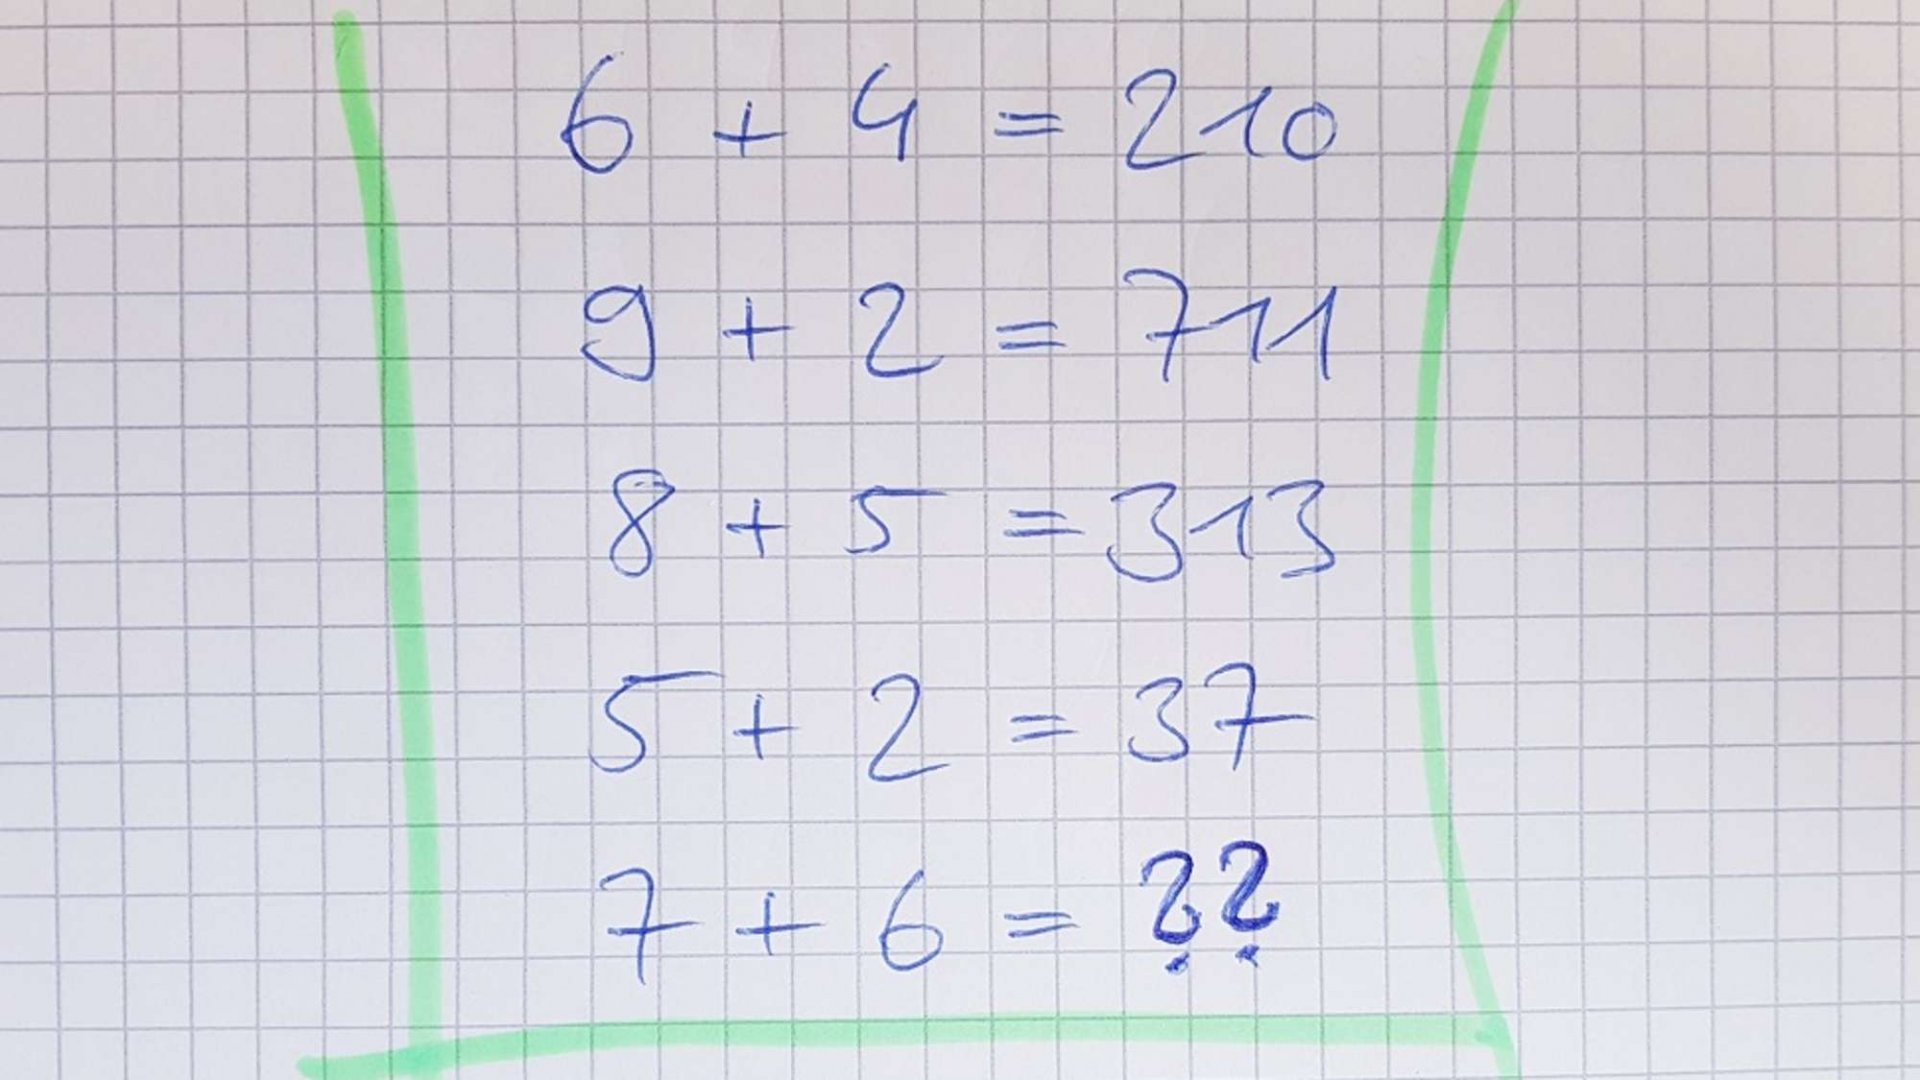 6 + 4 = 210
9 + 2 = 711
8 + 5 = 313
5 + 2 = 37
7 + 6 = ??